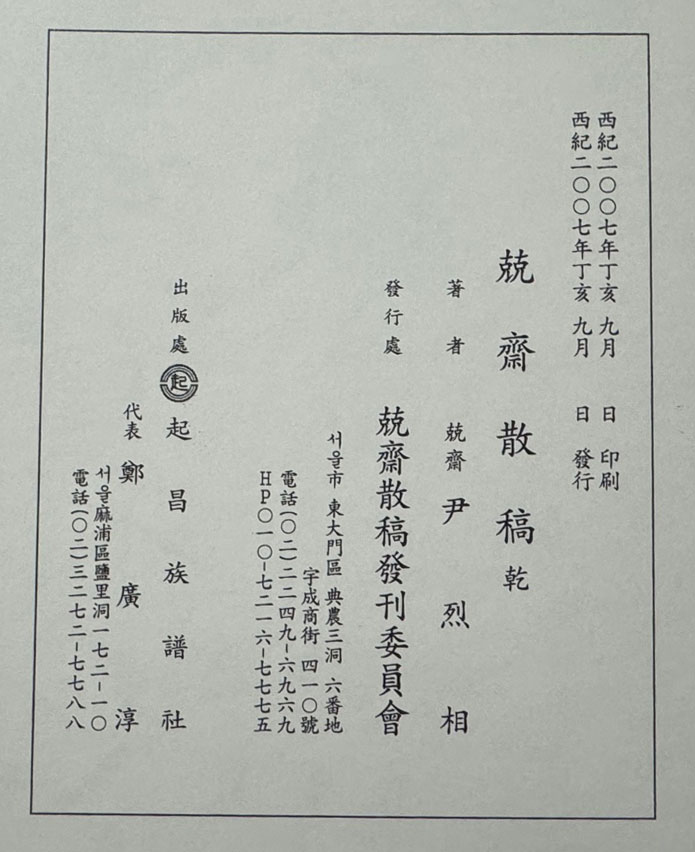 西紀二〇〇七年丁亥 九月 日 印刷
西紀二〇〇七年丁亥 九月 日 發行
兢齋散稿 乾
著者 兢齋 尹烈相
發行處 兢齋散稿發刊委員會
서울市 東大門區 典農三洞 六番地
宇成商街 四一〇號
電話(〇二)二二四九-六九六九
HP〇一〇-七二一六-七七七五
出版處 起 起昌族譜社
代表 鄭廣淳
서울麻浦區鹽里洞一七二-一〇
電話(〇二)三二七二-七七八八